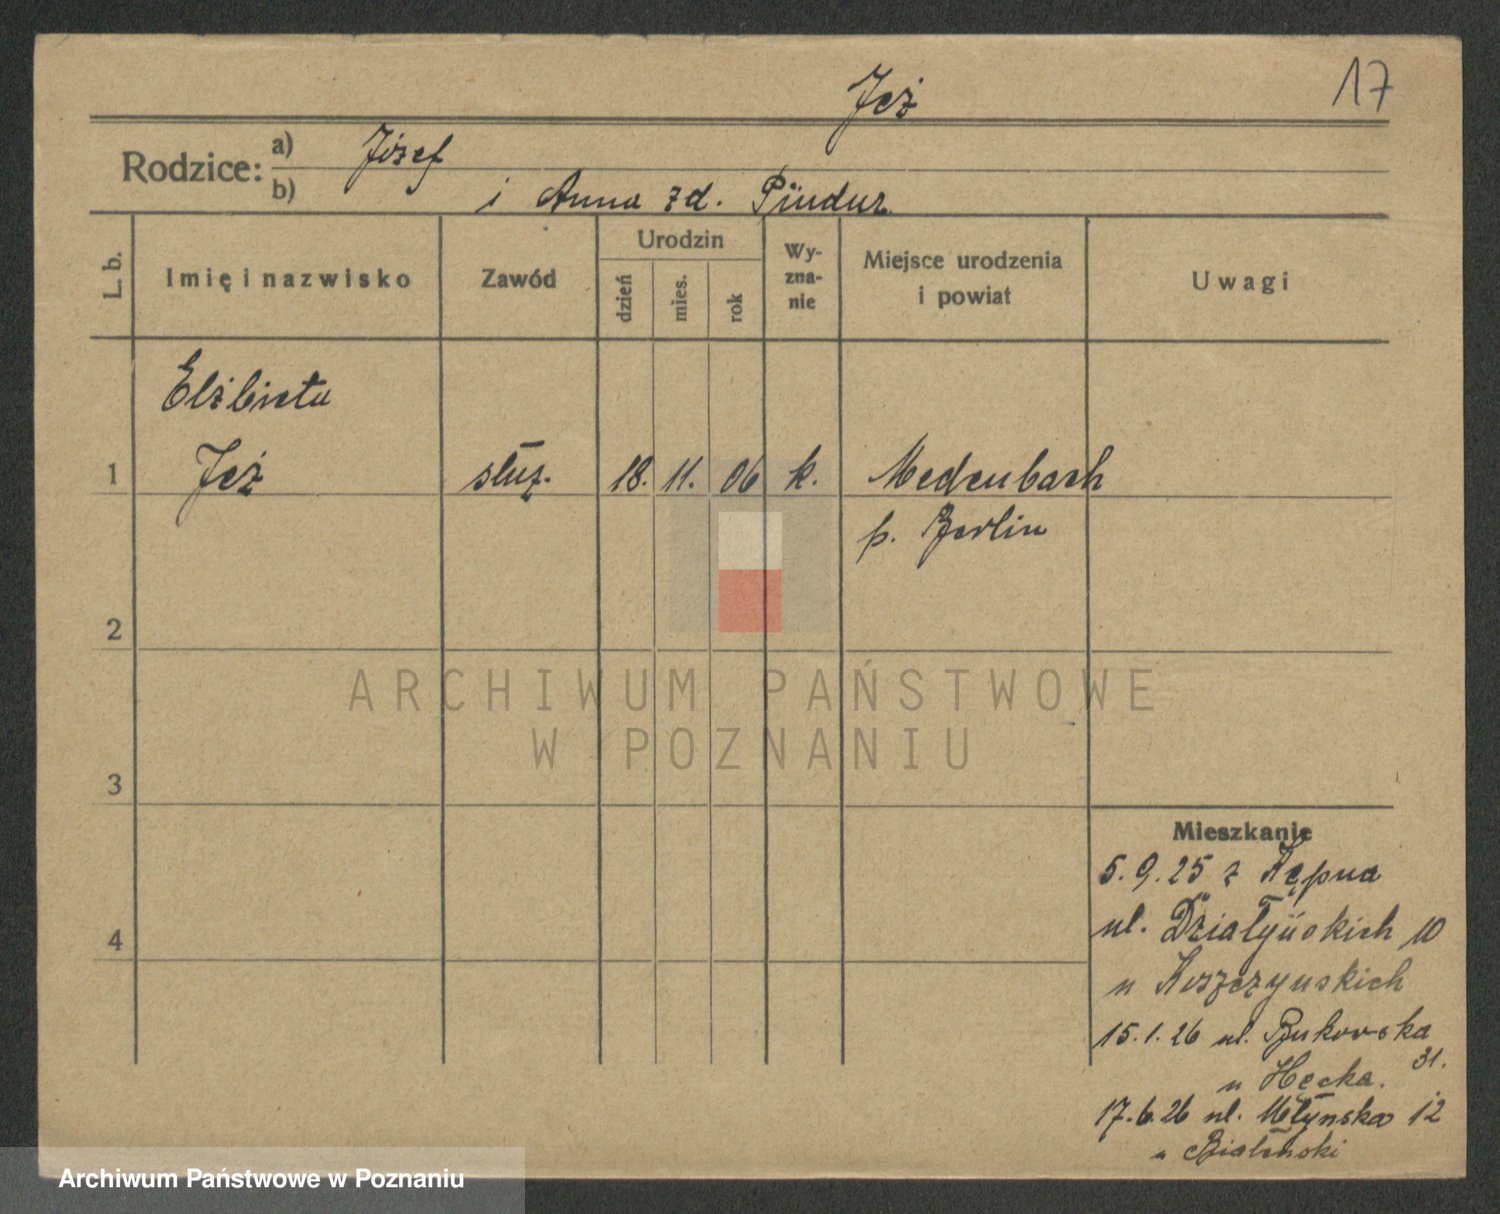 17
Jeż
Rodzice:
a) Józef
b) i Anna zd. Pindur
L. b.
Imię i nazwisko
Zawód
Urodzin
dzień
mies.
rok
Wy-
zna-
nie
Miejsce urodzenia
i powiat
Uwagi
Elżbieta
1 Jeż służ. 18. 11. 06 k. Medenbach
p. Berlin
2
3
4
ARCHIWUM PAŃSTWOWE
W POZNANIU
Mieszkanie
5. 9. 25 z Kępna
ul. Działyńskich 10
u Koszczyńskich
15. 1. 26 ul. Bukowska
31.
u Hęcka.
17. 6. 26 ul. Młynska 12
u Białeński
Archiwum Państwowe w Poznaniu